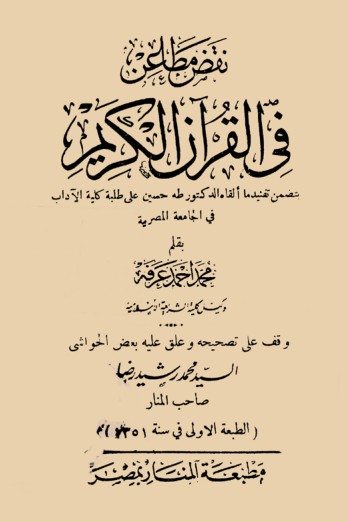 نقض مطاعن
في القرآن الكريم
يتضمن تفنيد ما ألقاه الدكتور طه حسين على طلبة كلية الآداب
في الجامعة المصرية
بقلم
محمد أحمد عرفه
وكيل كلية الشريعة الإسلامية
وقف على تصحيحه وعلق عليه بعض الحواشي
السيد محمد رشيد رضا
صاحب المنار
( الطبعة الاولى في سنة ١٣٥١ )
مطبعة المنار بمصر